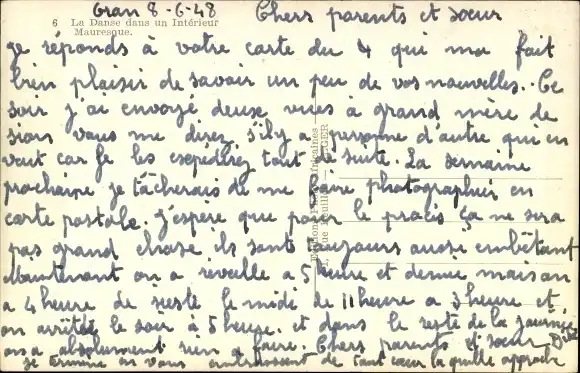 Oran 8-6-48 Chers parents et sœur
6 La Danse dans un Intérieur
Mauresque.
je réponds à votre carte du 4 qui ma fait
bien plaisir de savoir un peu de vos nouvelles. Ce
soir j'ai envoyé deux vues à grand mère de
sions vous me direz s'ily a personne d'autre qui en
vait car je les expédirez tout de suite. La semaine
prochaine je tâcherais de me faire photographier en
carte postale. j'espère que pour le procis ça ne sera
pas grand chose. ils sont toujours aussi embêtant
Maintenant on a réveille a 5 heure et demie mais on
a 4 heure de sieste le midi de 11 heure a 3 heure et
on arrête le soir à 5 heure. et dans le reste de la journée
on a absolument rien a faire. Chers parents et sœur
je termine en vous embrassant de tout cœur la quille approche
Africaines
ALGER